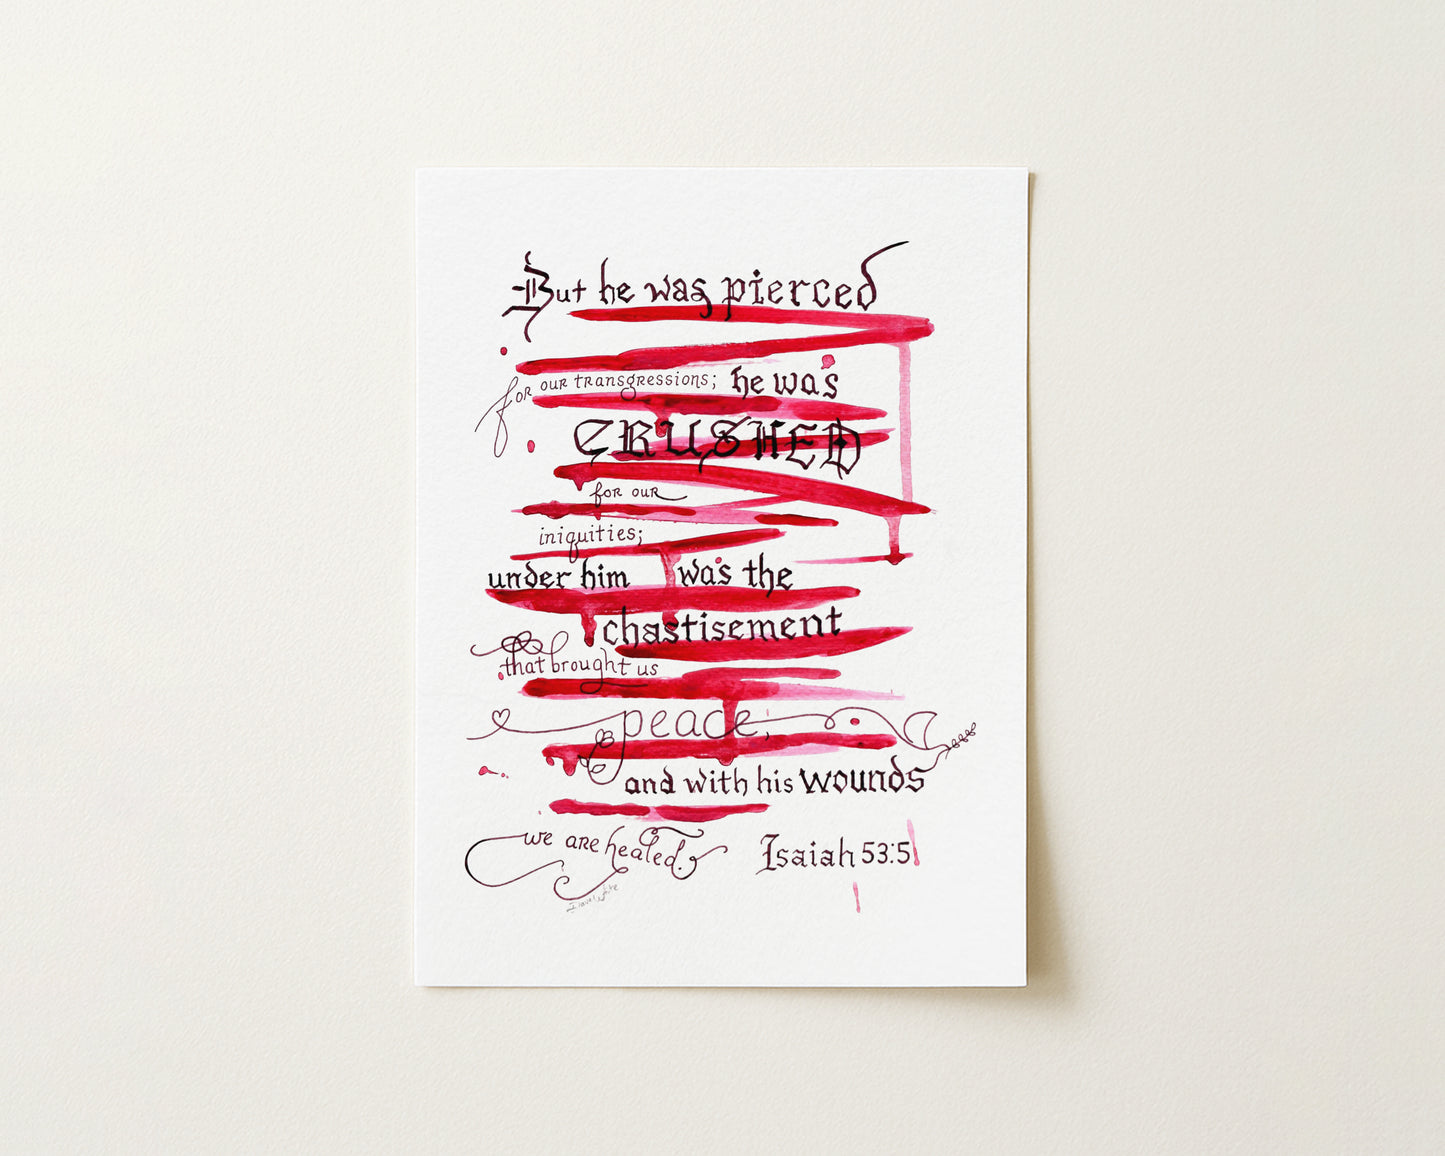 But he was pierced
for our transgressions; he was
CRUSHED
for our
iniquities;
under him was the
chastisement
that brought us
peace;
and with his wounds
we are healed. Isaiah 53:5